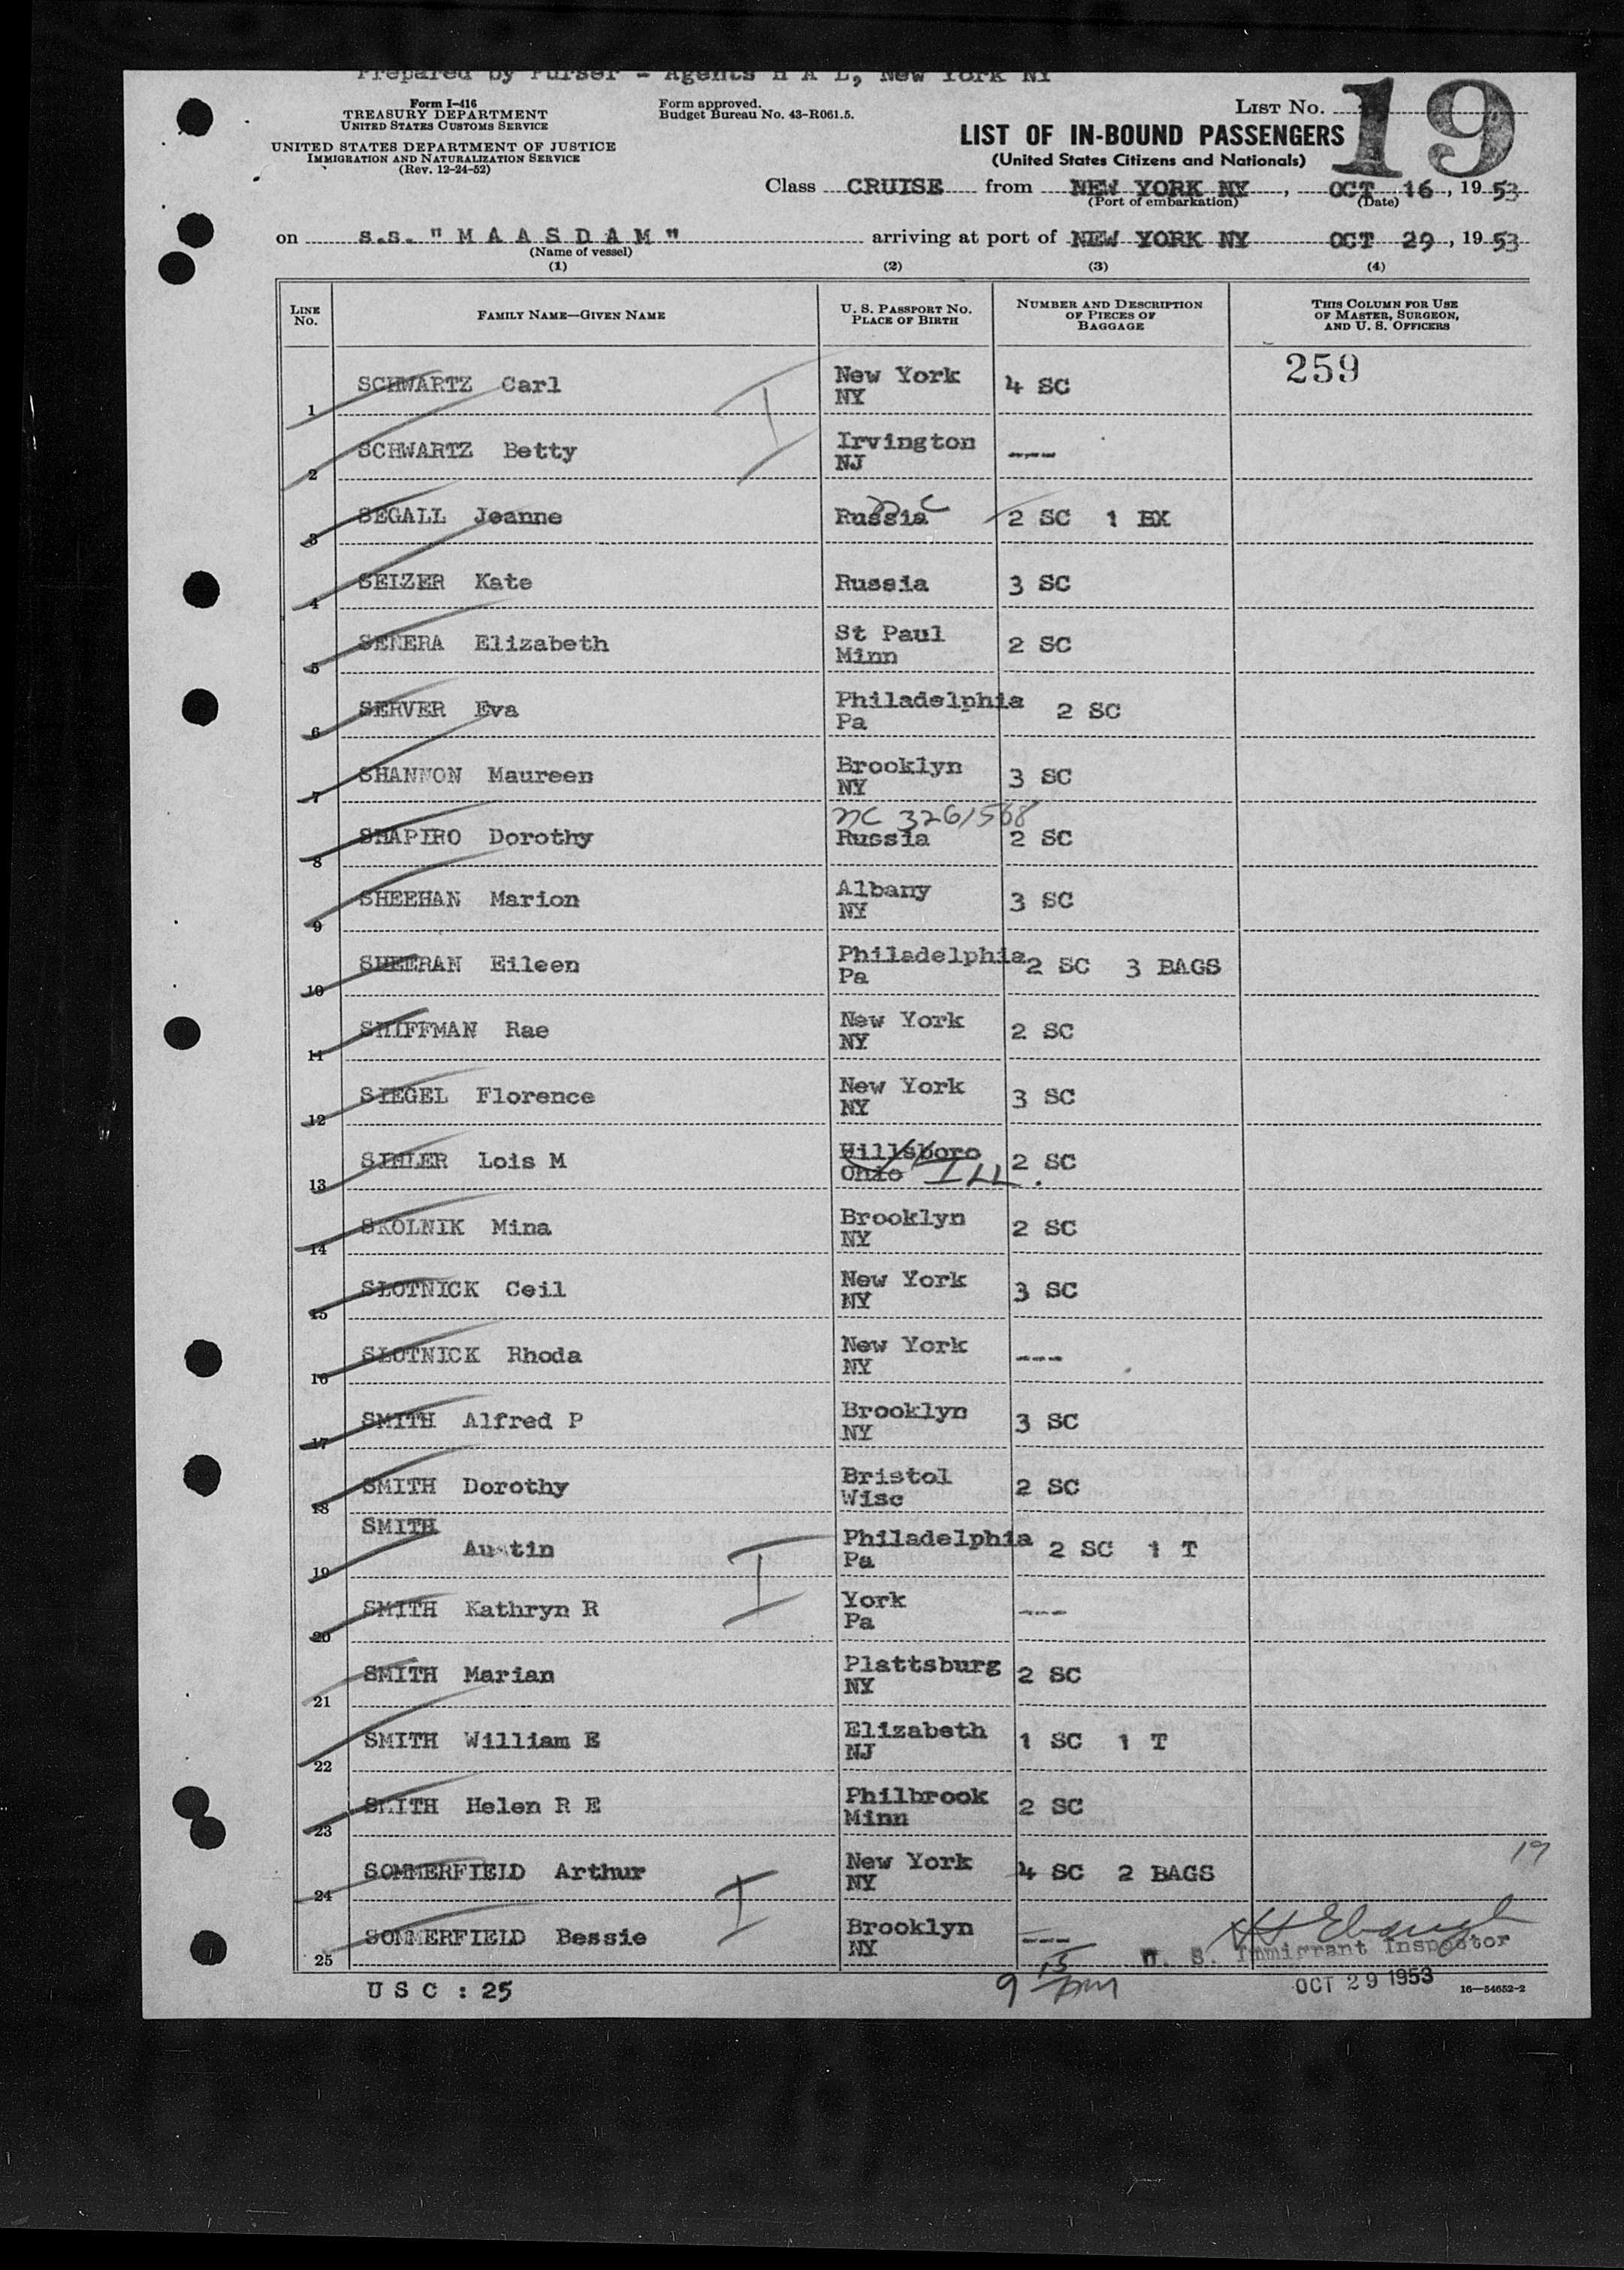 Prepared by Purser - Agents H A L, New York NY
Form I-416
TREASURY DEPARTMENT
UNITED STATES CUSTOMS SERVICE
UNITED STATES DEPARTMENT OF JUSTICE
IMMIGRATION AND NATURALIZATION SERVICE
(Rev. 12-24-52)
Form approved.
Budget Bureau No. 43-R061.5.
LIST No.
19
LIST OF IN-BOUND PASSENGERS
(United States Citizens and Nationals)
Class CRUISE from NEW YORK NY, OCT 16, 1953
(Port of embarkation) (Date)
on s.s. "M A A S D A M" arriving at port of NEW YORK NY OCT 29, 1953
(Name of vessel)
(1) (2) (3) (4)
LINE No. FAMILY NAME—GIVEN NAME U. S. PASSPORT NO. PLACE OF BIRTH NUMBER AND DESCRIPTION OF PIECES OF BAGGAGE THIS COLUMN FOR USE OF MASTER, SURGEON, AND U. S. OFFICERS
259
1 SCHWARTZ Carl New York NY 4 SC
2 SCHWARTZ Betty Irvington NJ ---
3 SEGALL Jeanne Russia nc 2 SC 1 BX
4 SEIZER Kate Russia 3 SC
5 SENERA Elizabeth St Paul Minn 2 SC
6 SERVER Eva Philadelphia Pa 2 SC
7 SHANNON Maureen Brooklyn NY 3 SC
nc 3261568
8 SHAPIRO Dorothy Russia 2 SC
9 SHEEHAN Marion Albany NY 3 SC
10 SHEERAN Eileen Philadelphia Pa 2 SC 3 BAGS
11 SHIFFMAN Rae New York NY 2 SC
12 SIEGEL Florence New York NY 3 SC
13 SIHLER Lois M Hillsboro Ohio ILL. 2 SC
14 SKOLNIK Mina Brooklyn NY 2 SC
15 SLOTNICK Ceil New York NY 3 SC
16 SLOTNICK Rhoda New York NY ---
17 SMITH Alfred P Brooklyn NY 3 SC
18 SMITH Dorothy Bristol Wisc 2 SC
19 SMITH Austin Philadelphia Pa 2 SC 1 T
20 SMITH Kathryn R York Pa ---
21 SMITH Marian Plattsburg NY 2 SC
22 SMITH William E Elizabeth NJ 1 SC 1 T
23 SMITH Helen R E Philbrook Minn 2 SC
24 SOMMERFIELD Arthur New York NY 4 SC 2 BAGS
19
25 SOMMERFIELD Bessie Brooklyn NY ---
U. S. Immigrant Inspector
U S C : 25
9 15
OCT 29 1953
16—54652-2